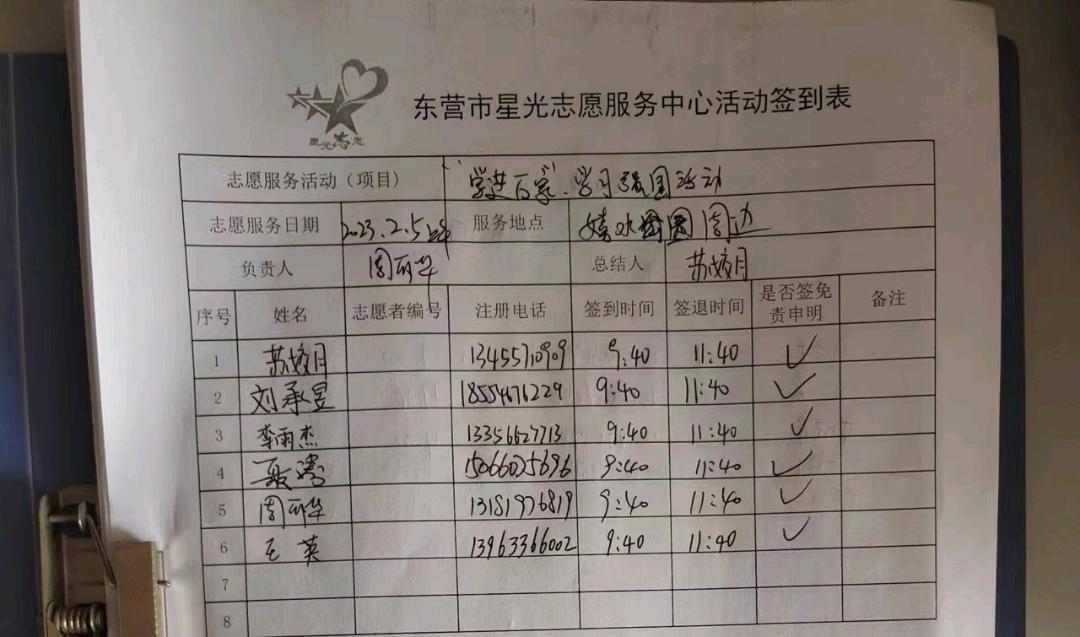 星光志愿
东营市星光志愿服务中心活动签到表
志愿服务活动（项目） "学进百家、学习强国活动
志愿服务日期 2023.2.5上午 服务地点 周边
负责人 周丽华 总结人 苏姣月
序号 姓名 志愿者编号 注册电话 签到时间 签退时间 是否签免责申明 备注
1 苏姣月 13455710909 9:40 11:40 ✓
2 刘承昱 18554676229 9:40 11:40 ✓
3 李雨杰 13356627713 9:40 11:40 ✓
4 聂涛 15066025696 9:40 11:40 ✓
5 周丽华 13181976819 9:40 11:40 ✓
6 王英 13963366002 9:40 11:40 ✓
7
8